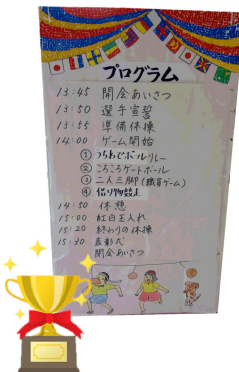 プログラム
13:45 開会あいさつ
13:50 選手宣誓
13:55 準備体操
14:00 ゲーム開始
① うちわでボールリレー
② ころころゲートボール
③ 二人三脚(職員ゲーム)
④ 借り物競走
14:50 休憩
15:00 紅白玉入れ
15:20 終わりの体操
15:30 表彰式
閉会あいさつ